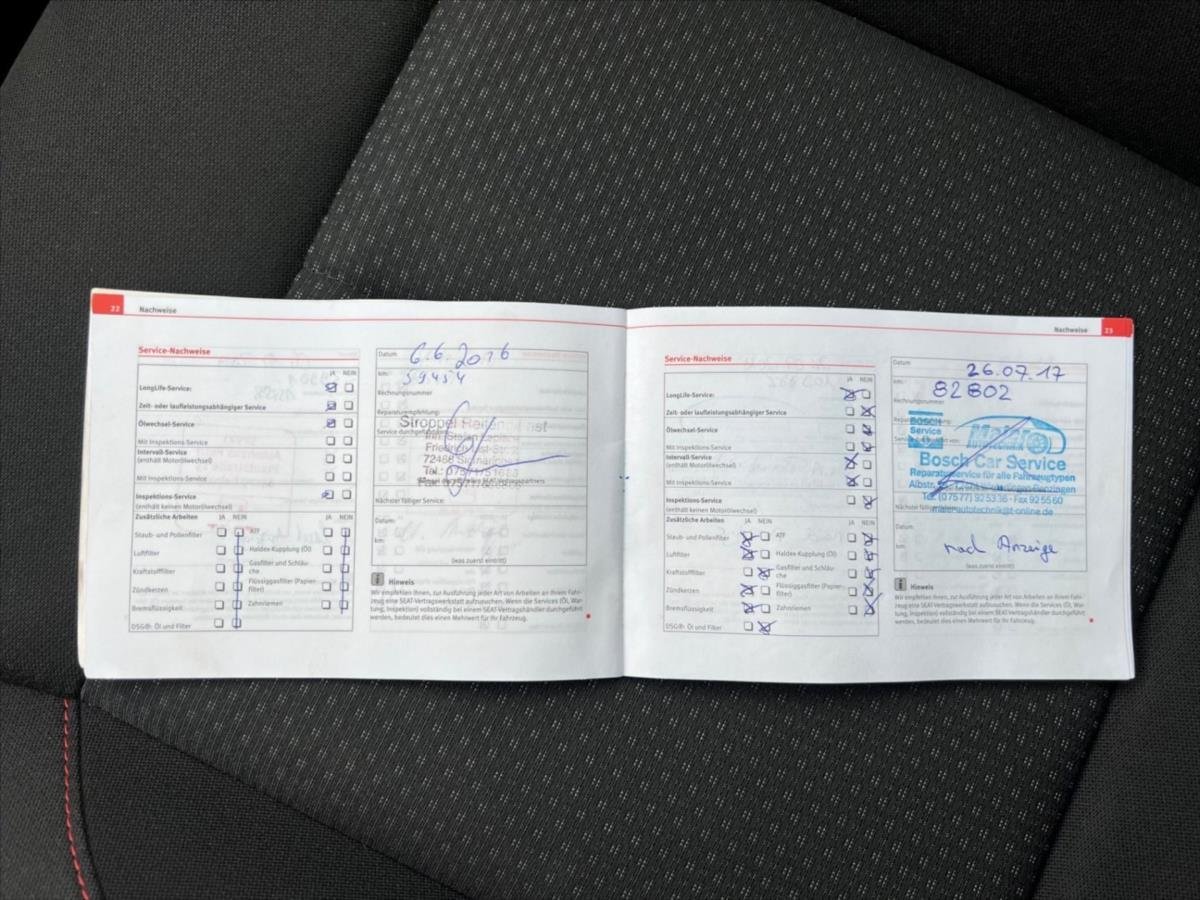 22
Nachweise
Service-Nachweise
JA NEIN
LongLife-Service:
Zeit- oder laufleistungsabhängiger Service
Ölwechsel-Service
Mit Inspektions-Service
Intervall-Service
(enthält Motorölwechsel)
Mit Inspektions-Service
Inspektions-Service
(enthält keinen Motorölwechsel)
Zusätzliche Arbeiten JA NEIN JA NEIN
Staub- und Pollenfilter ATF
Luftfilter Haldex-Kupplung (Öl)
Kraftstofffilter Gasfilter und Schläu-
che
Zündkerzen Flüssiggasfilter (Papier-
filter)
Bremsflüssigkeit Zahnriemen
DSG®: Öl und Filter
Datum 6.6.2016
km: 59454
Rechnungsnummer
Reparaturempfehlung:
Stroppel
Service durchgeführt
72488
Tel.:
Fax:
Nächster fälliger Service:
Datum:
km:
(was zuerst eintritt)
Hinweis
Wir empfehlen Ihnen, zur Ausführung jeder Art von Arbeiten an Ihrem Fahr-
zeug eine SEAT-Vertragswerkstatt aufzusuchen. Wenn die Services (Öl, War-
tung, Inspektion) vollständig bei einem SEAT-Vertragshändler durchgeführt
werden, bedeutet dies einen Mehrwert für Ihr Fahrzeug.
Nachweise
23
Service-Nachweise
JA NEIN
LongLife-Service:
Zeit- oder laufleistungsabhängiger Service
Ölwechsel-Service
Mit Inspektions-Service
Intervall-Service
(enthält Motorölwechsel)
Mit Inspektions-Service
Inspektions-Service
(enthält keinen Motorölwechsel)
Zusätzliche Arbeiten JA NEIN JA NEIN
Staub- und Pollenfilter ATF
Luftfilter Haldex-Kupplung (Öl)
Kraftstofffilter Gasfilter und Schläu-
che
Zündkerzen Flüssiggasfilter (Papier-
filter)
Bremsflüssigkeit Zahnriemen
DSG®: Öl und Filter
Datum
26.07.17
km: 82802
Rechnungsnummer
BOSCH
Service
Bosch Car Service
Reparaturservice für alle Fahrzeugtypen
Tel. (07577) 92 53 36 · Fax 92 55 60
maierautotechnik@t-online.de
Datum:
km: nach Anzeige
(was zuerst eintritt)
Hinweis
Wir empfehlen Ihnen, zur Ausführung jeder Art von Arbeiten an Ihrem Fahr-
zeug eine SEAT-Vertragswerkstatt aufzusuchen. Wenn die Services (Öl, War-
tung, Inspektion) vollständig bei einem SEAT-Vertragshändler durchgeführt
werden, bedeutet dies einen Mehrwert für Ihr Fahrzeug.